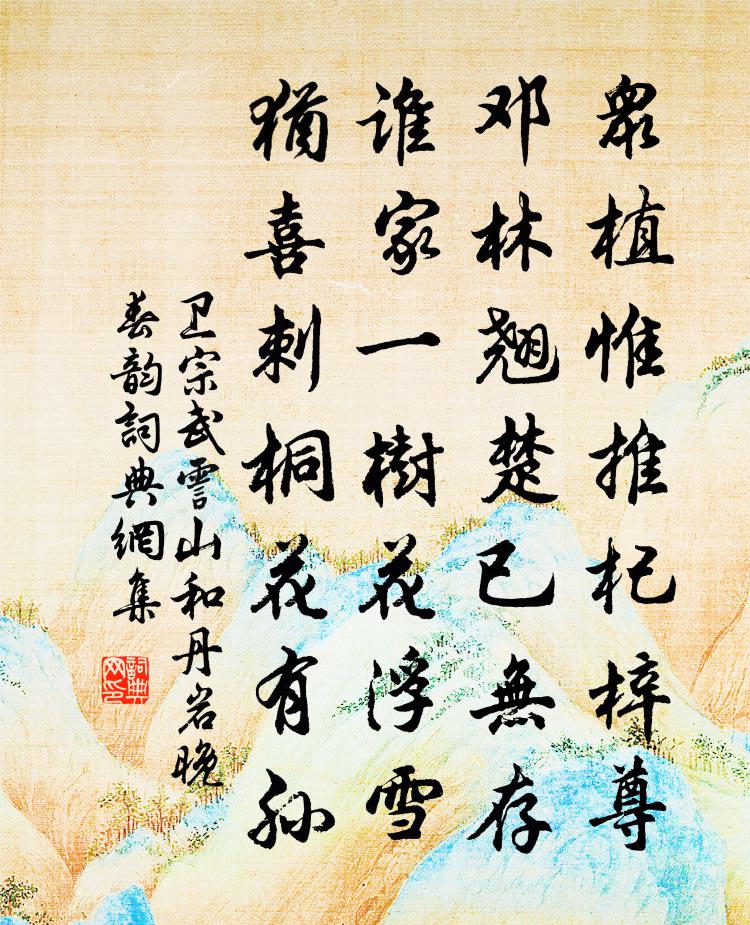 眾植惟推杞梓尊
邓林翘楚已無存
谁家一樹花浮雪
猶喜刺桐花有孙
卫宗武雲山和丹岩晚
春韵詞典網集
詞典
网印